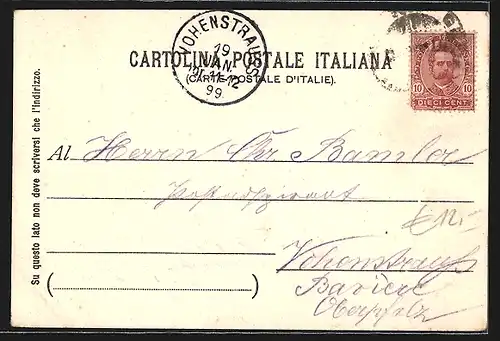 VOHENSTRAUSS
19
JAN.
11-12
99
CARTOLINA POSTALE ITALIANA
(CARTE POSTALE D'ITALIE).
10 10
DIECI CENT.
Su questo lato non deve scriversi che l'indirizzo.
Al Herrn Chr Bamler
€ 12,-
Vohenstrauß
Bavière
Oberpfalz